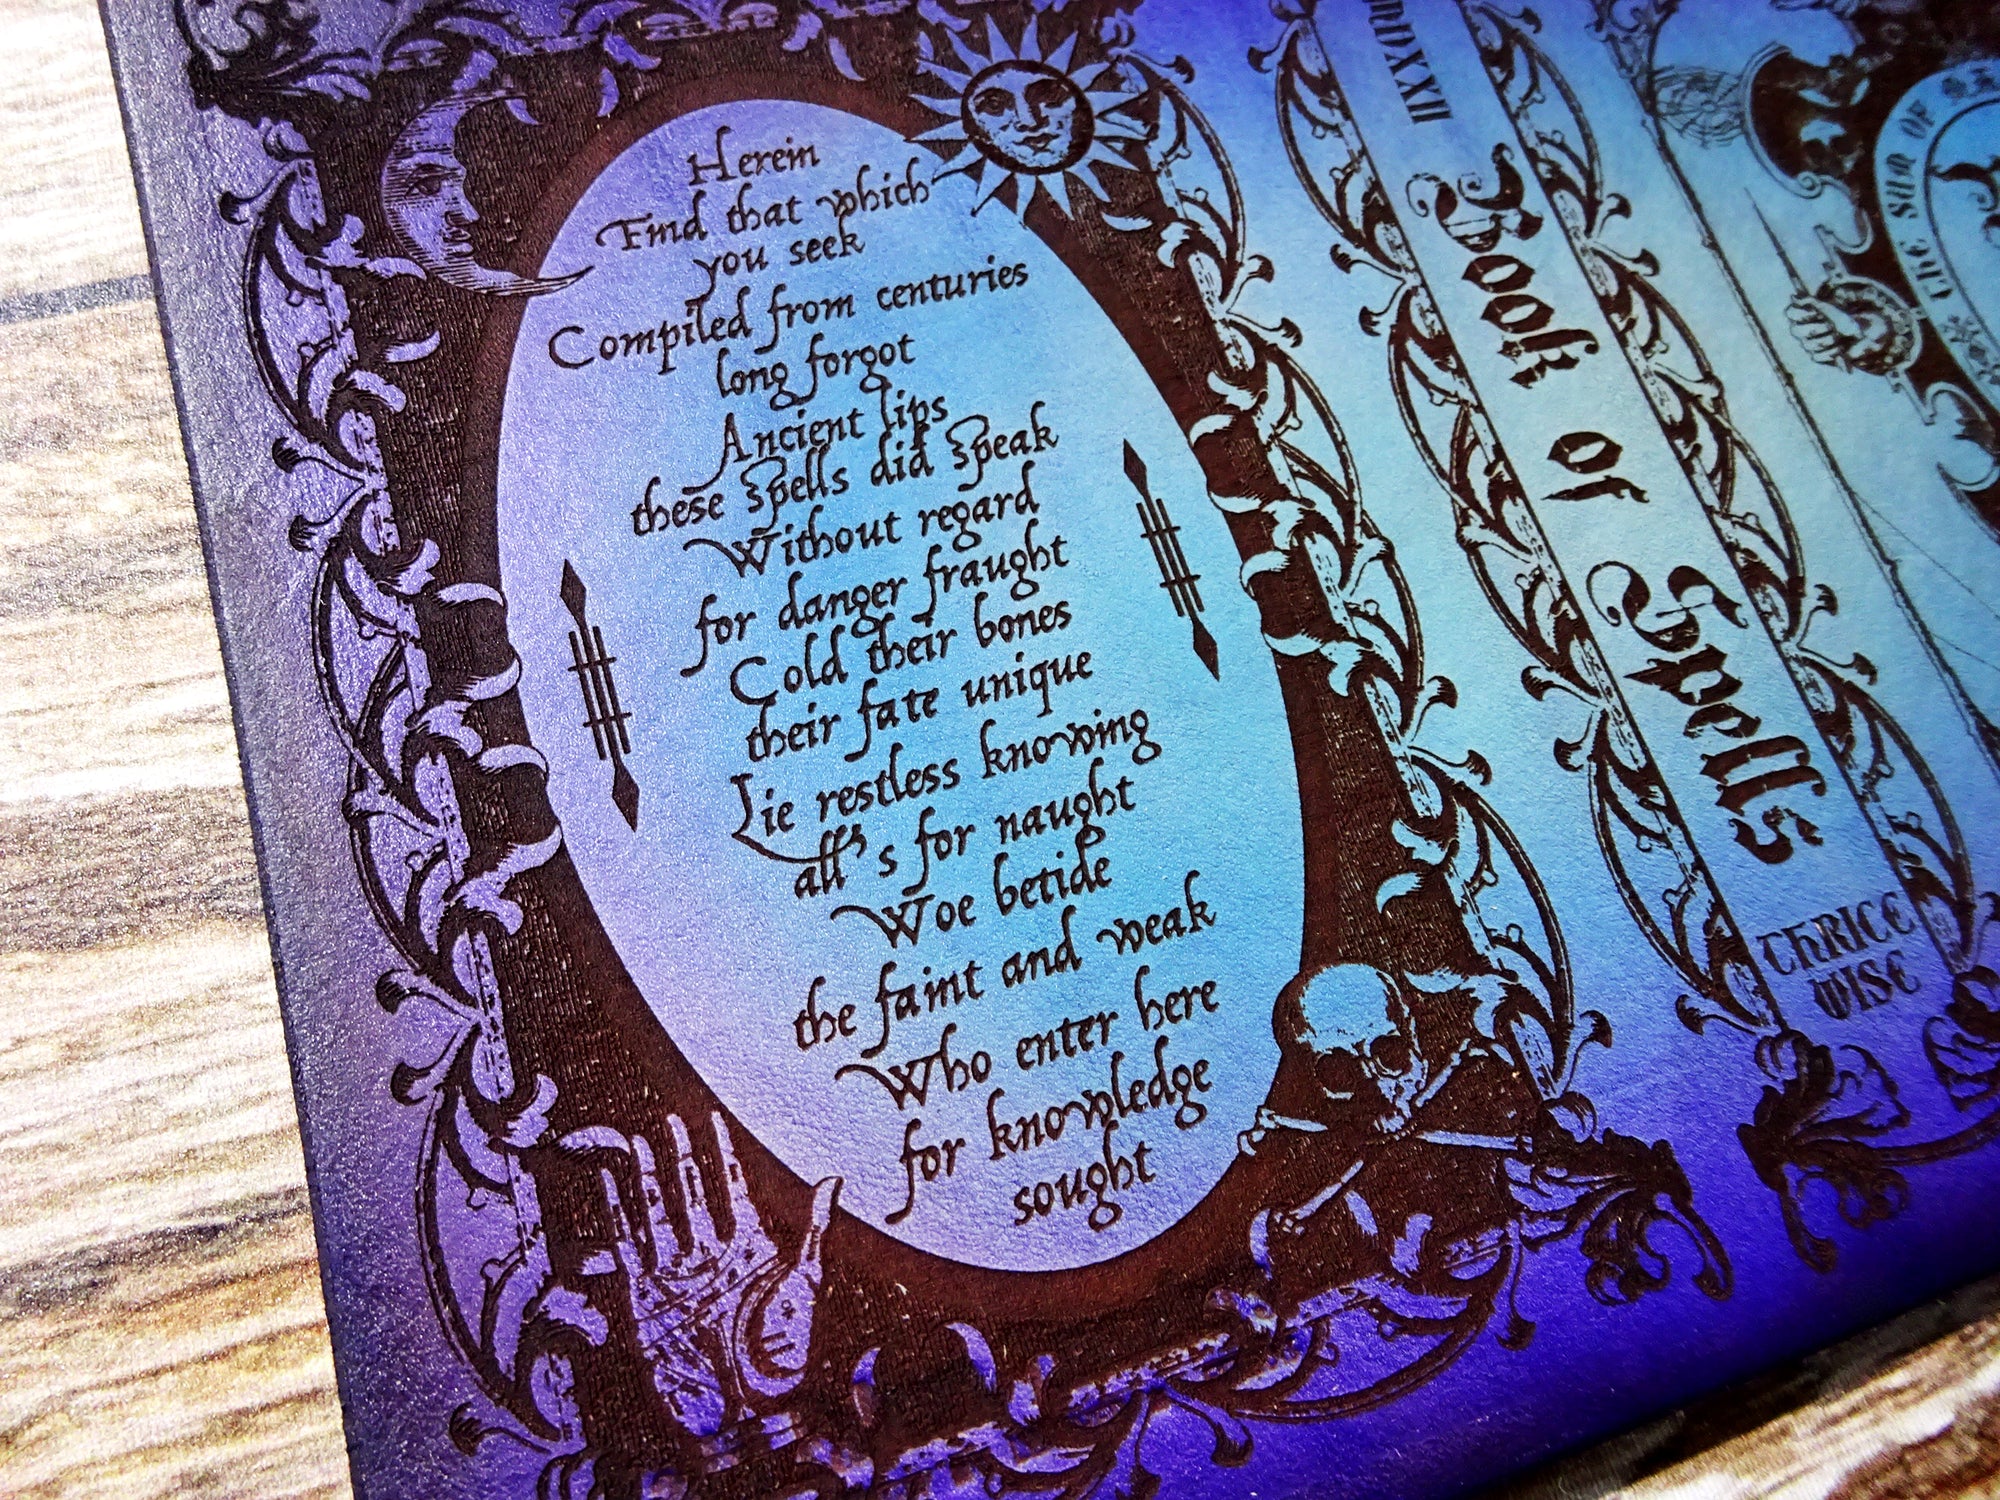 Herein
Find that which
you seek
Compiled from centuries
long forgot
Ancient lips
these Spells did Speak
Without regard
for danger fraught
Cold their bones
their fate unique
Lie restless knowing
all's for naught
Woe betide
the faint and weak
Who enter here
for knowledge
sought
Book of Spells
THRICE
WISE
THE SUM OF